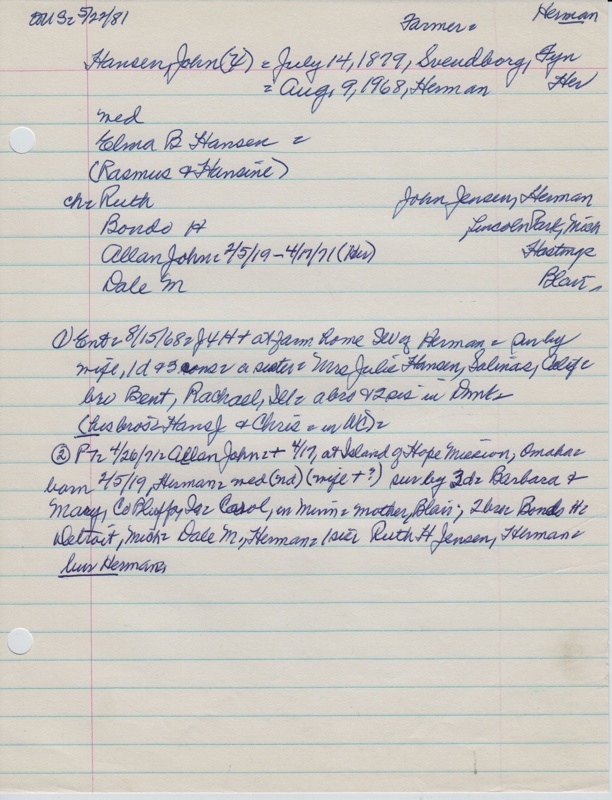 5/22/81
Farmer =
Herman
Hansen, John (4) = July 14, 1879, Svendborg, Fyn
= Aug. 9, 1968, Herman Her
med
Elma B Hansen =
(Rasmus & Hansine)
ch= Ruth John Jensen, Herman
Bondo H Lincoln Park, Mich
Allan John = 2/5/19 - 4/17/71 (Her) Hastings
Dale M Blair
① Ent = 8/15/68 = J4H + at farm home SW of Herman = sur by
wife, 1 d & 3 sons = a sister = Mrs Julia Hansen, Salinas, Calif =
bro Bent, Rachael, Ill = a bro & 2 sis in Dmk =
(his bros = Hans J & Chris = in WC) =
② PT = 4/26/71 = Allan John = + 4/17, at Island of Hope Mission, Omaha =
born 2/5/19, Herman = med (nd) (wife + ?) sur by 3d = Barbara &
Mary, Co Bluffs, Ia = Carol, in Minn = mother, Blair; 2 bro = Bondo H =
Detroit, Mich = Dale M., Herman = 1 sis = Ruth H Jensen, Herman =
bur Herman